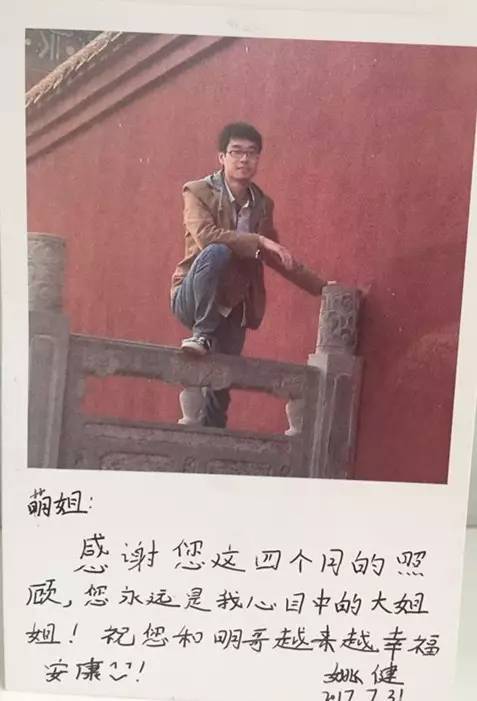 萌姐:
感谢您这四个月的照
顾,您永远是我心目中的大姐
姐!祝您和明哥越来越幸福
安康!
姚健
2017.7.31